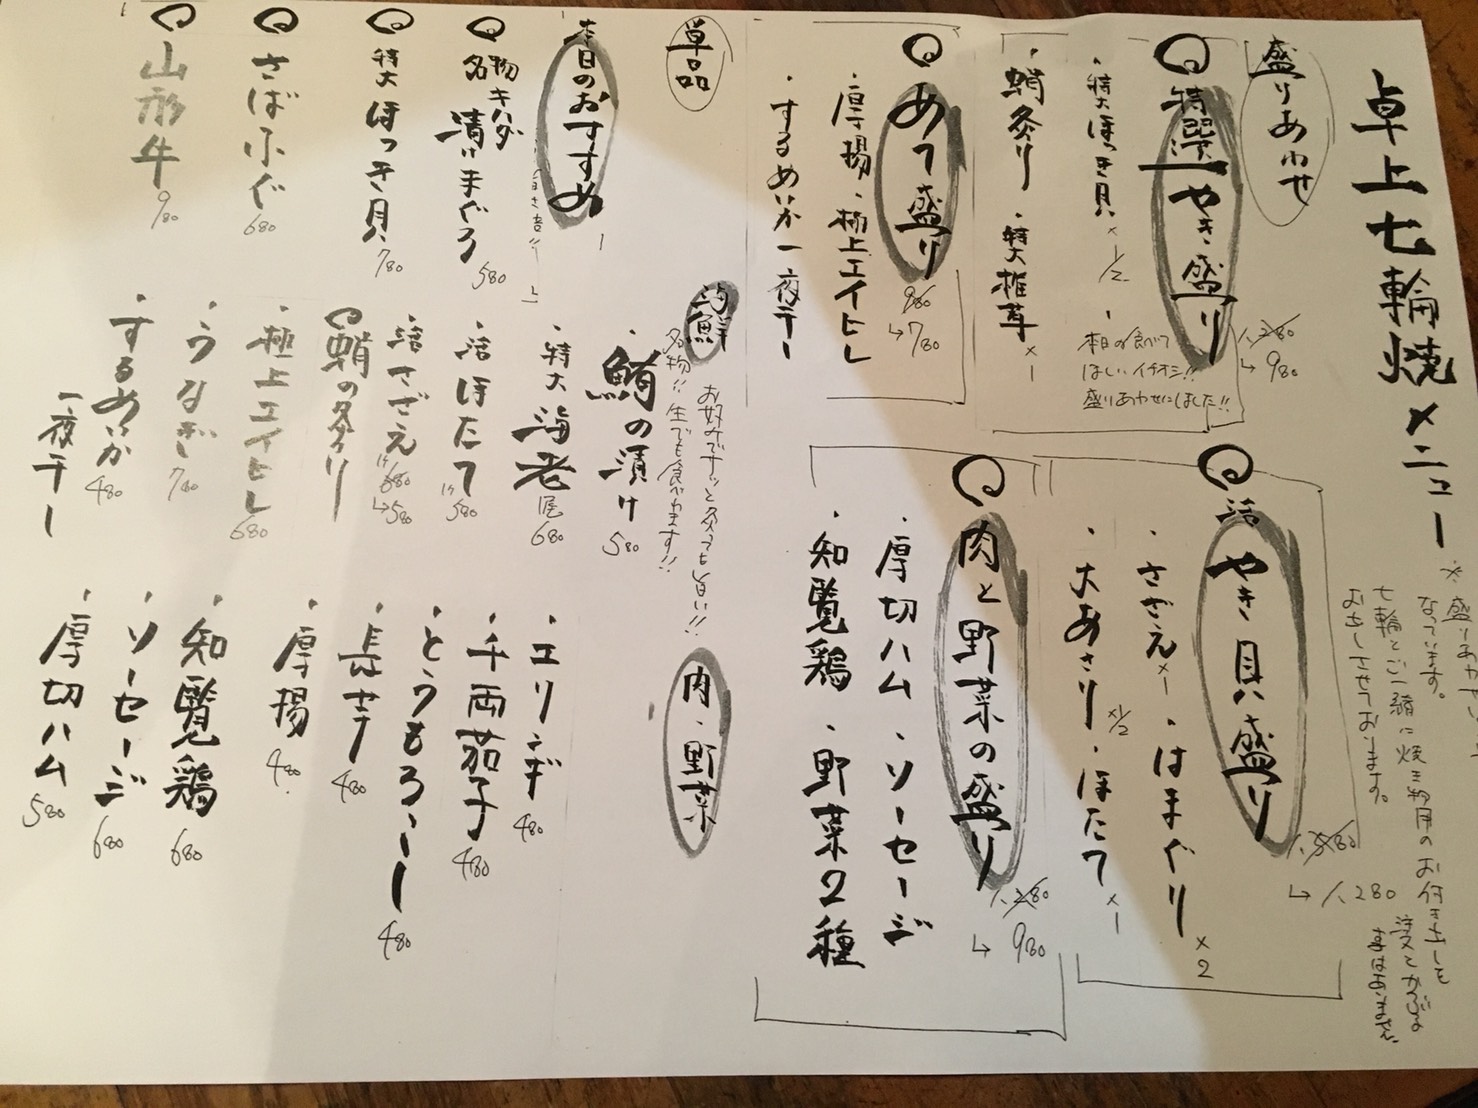 卓上七輪焼メニュー
なっています。
七輪とご一緒に焼き物用のお付き出しを
お出しさせております。
盛りあわせ
特選 やき盛り
1,280
↳ 980
・特大ほっき貝 ×1/2
本日の食べて
ほしいイチオシ!!
盛りあわせにしました!!
・蛸炙り ・特大椎茸 ×1
あて盛り
980
↳ 780
・厚揚・極上エイヒレ
・するめいか一夜干し
活 やき貝盛り
↳ 1,280
・さざえ×1・はまぐり×2
・大あさり×1/2・ほたて×1
肉と野菜の盛り
1,280
↳ 980
・厚切ハム・ソーセージ
・知覧鶏・野菜2種
単品
本日のおすすめ
名物キハダ漬けまぐろ 580
特大ほっき貝 780
さばふぐ 680
山形牛 980
海鮮
お好みでサッと炙っても旨い!!
名物!!生でも食べれます!!
・鮪の漬け 580
・特大海老 1尾 680
・活ほたて 1ケ 580
・活さざえ 1ケ 680
↳ 580
蛸の炙り
・極上エイヒレ 680
・うなぎ 780
・するめいか一夜干し 480
肉・野菜
・エリンギ 480
・千両茄子 480
・とうもろこし 480
・長芋 480
・厚揚 480
・知覧鶏 680
・ソーセージ 680
・厚切ハム 580